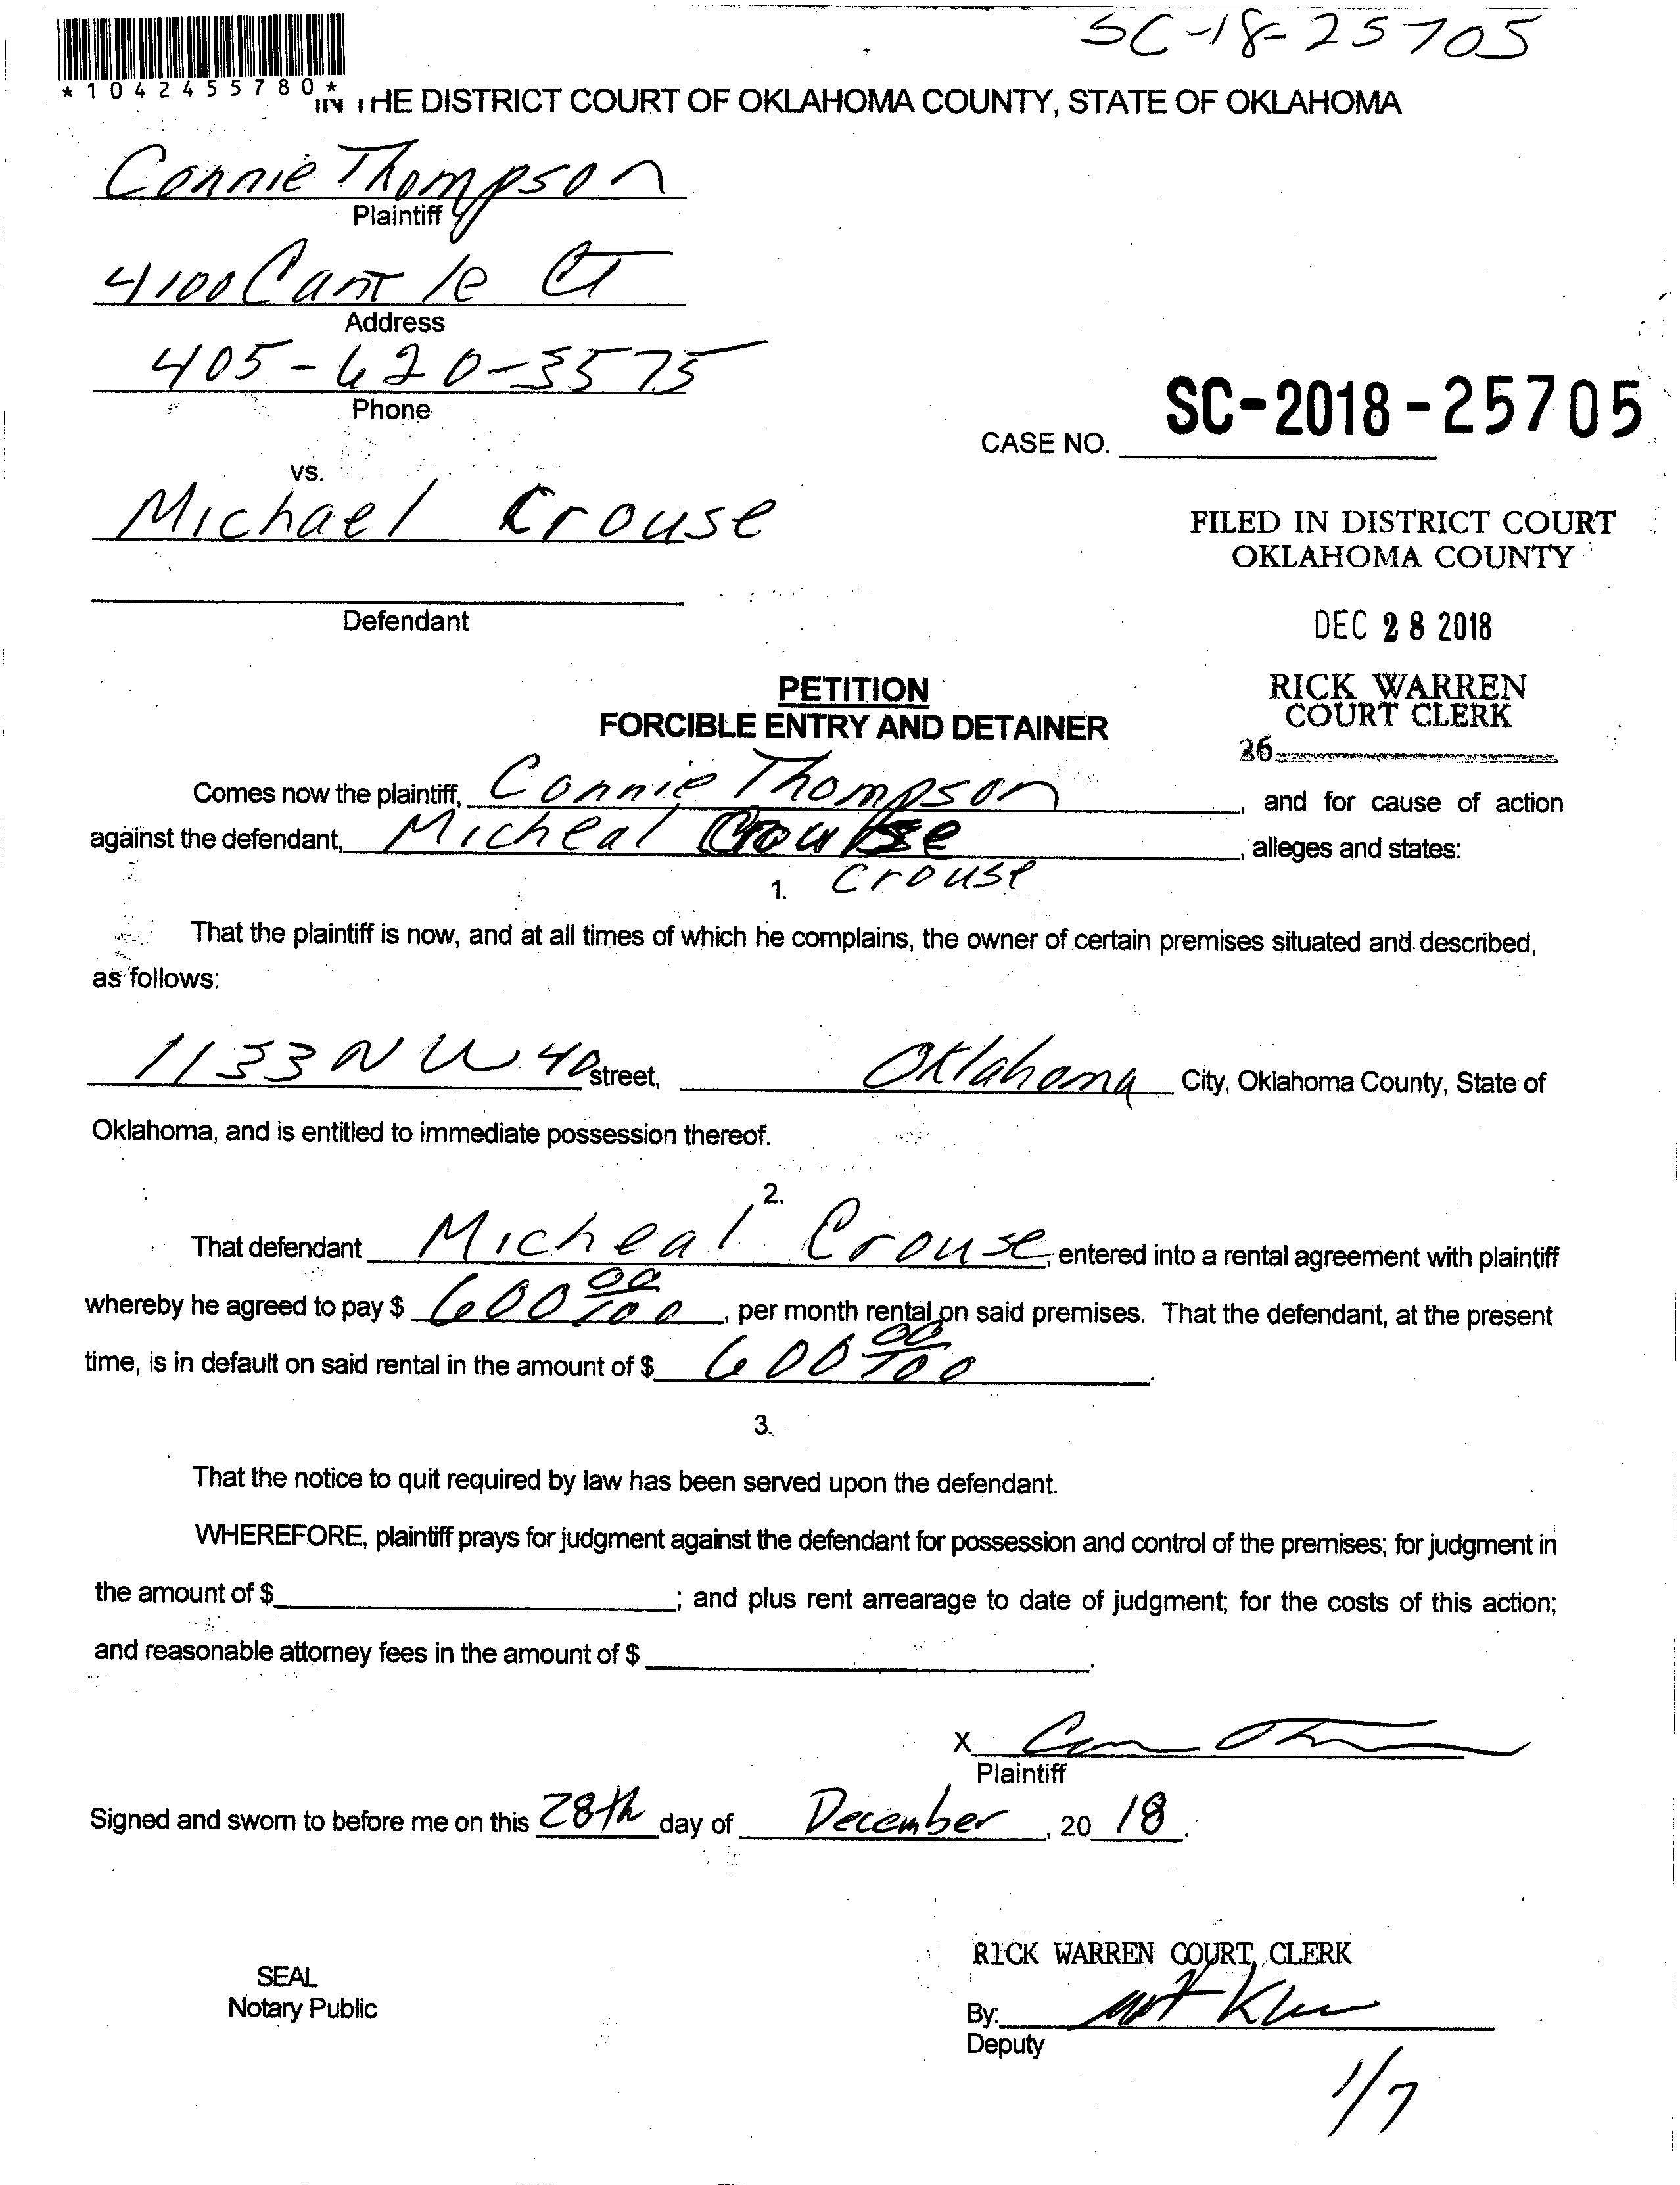 SC-18-25705
*1042455780*
IN THE DISTRICT COURT OF OKLAHOMA COUNTY, STATE OF OKLAHOMA
Connie Thompson
Plaintiff
4100 Cantle Ct
Address
405-620-3575
Phone
SC-2018-25705
CASE NO.
vs.
Michael Crouse
FILED IN DISTRICT COURT
OKLAHOMA COUNTY
Defendant
DEC 28 2018
PETITION
RICK WARREN
COURT CLERK
FORCIBLE ENTRY AND DETAINER
26
Comes now the plaintiff, Connie Thompson, and for cause of action
against the defendant, Micheal Crouse, alleges and states:
1. Crouse
That the plaintiff is now, and at all times of which he complains, the owner of certain premises situated and described,
as follows:
1133 NW 40 street, Oklahoma City, Oklahoma County, State of
Oklahoma, and is entitled to immediate possession thereof.
2.
That defendant Micheal Crouse, entered into a rental agreement with plaintiff
whereby he agreed to pay $ 600 00/100, per month rental on said premises. That the defendant, at the present
time, is in default on said rental in the amount of $ 600 00/100.
3.
That the notice to quit required by law has been served upon the defendant.
WHEREFORE, plaintiff prays for judgment against the defendant for possession and control of the premises; for judgment in
the amount of $; and plus rent arrearage to date of judgment; for the costs of this action;
and reasonable attorney fees in the amount of $.
X
Plaintiff
Signed and sworn to before me on this 28th day of December, 20 18.
RICK WARREN COURT CLERK
SEAL
Notary Public
By:
Deputy
1/7